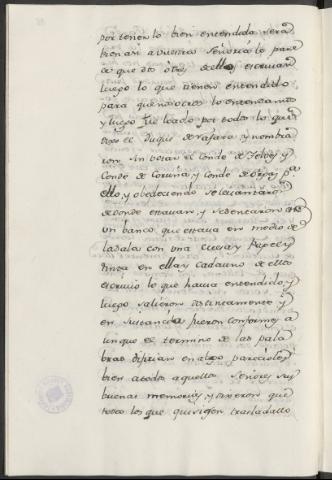 por tenerlo bien entendido será
bien así a vuestra Señoría le pare
ce que dos o tres de ellos escriuan
luego lo que tienen entendido
para que nosotros lo entendamos
y luego fue loado por todos lo que
dixo el Duque de y nombra
ron sin votar el Conde de y
Conde de Coruña y Conde de pa
ello, y obedeciendo se leuantaron
de donde estauan y se sentaron en
un banco que estaua en medio de
la sala con una mesa y Papel y
tinta en ella y cada uno de ellos
escriuio lo que hauia entendido y
luego salieron distintamente y
en sustancia fueron conformes a
unque el termino de las pala
bras diferian en algo parecioles
bien a todos aquellos Señores sus
buenas memorias, y dixeron que
todos los que quisiesen trasladallo